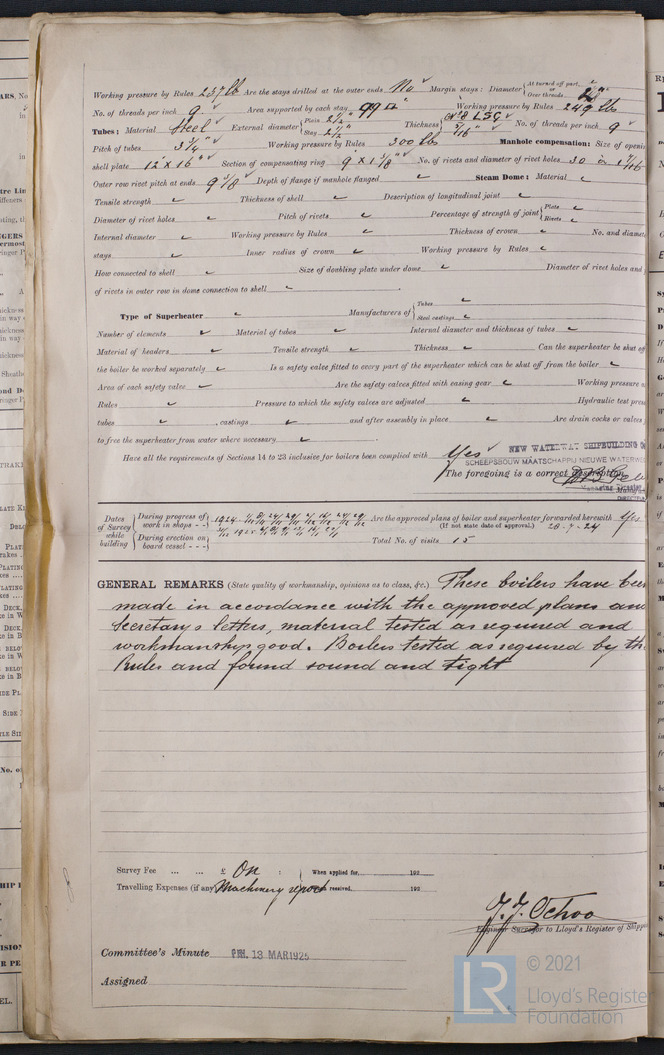 Working pressure by Rules 257 lb Are the stays drilled at the outer ends No Margin stays: Diameter { At turned off part, or Over threads
No. of threads per inch 9 Area supported by each stay 99 □" Working pressure by Rules 249 lbs
Tubes: Material Steel External diameter { Plain 2½" Stay 2½" Thickness { No 8 LSG 5/16" No. of threads per inch 9
Pitch of tubes 3¾" Working pressure by Rules 300 lbs Manhole compensation: Size of openi
shell plate 12" x 16" Section of compensating ring 9 x 1 1/8" No. of rivets and diameter of rivet holes 30
Outer row rivet pitch at ends 9 3/8 Depth of flange if manhole flanged Steam Dome: Material
Tensile strength Thickness of shell Description of longitudinal joint
Diameter of rivet holes Pitch of rivets Percentage of strength of joint { Plate Rivets
Internal diameter Working pressure by Rules Thickness of crown No. and diamete
stays Inner radius of crown Working pressure by Rules
How connected to shell Size of doubling plate under dome Diameter of rivet holes and
of rivets in outer row in dome connection to shell
Type of Superheater Manufacturers of { Tubes Steel castings
Number of elements Material of tubes Internal diameter and thickness of tubes
Material of headers Tensile strength Thickness Can the superheater be shut off
the boiler be worked separately Is a safety valve fitted to every part of the superheater which can be shut off from the boiler
Area of each safety valve Are the safety valves fitted with easing gear Working pressure
Rules Pressure to which the safety valves are adjusted Hydraulic test pres
tubes , castings and after assembly in place Are drain cocks or valves
to free the superheater from water where necessary
Have all the requirements of Sections 14 to 23 inclusive for boilers been complied with Yes
NEW WATERWAY SHIPBUILDING
SCHEEPSBOUW MAATSCHAPPIJ NIEUWE WATERWE
The foregoing is a correct description,
Dates of Survey while building { During progress of work in shops - - 1924
During erection on board vessel - - -
Are the approved plans of boiler and superheater forwarded herewith Yes
(If not state date of approval.) 28-7-24
Total No. of visits 15
GENERAL REMARKS (State quality of workmanship, opinions as to class, &c.) These boilers have been
made in accordance with the approved plans and
Secretary's letters, material tested as required and
workmanship good. Boilers tested as required by th
Rules and found sound and tight
Survey Fee ... ... £ On : When applied for, 192
Travelling Expenses (if any) Machinery report received, 192
J. J. Ochoo
Engineer Surveyor to Lloyd's Register of Shippi
Committee's Minute FRI. 13 MAR 1925
Assigned
LR
© 2021
Lloyd's Register
Foundation